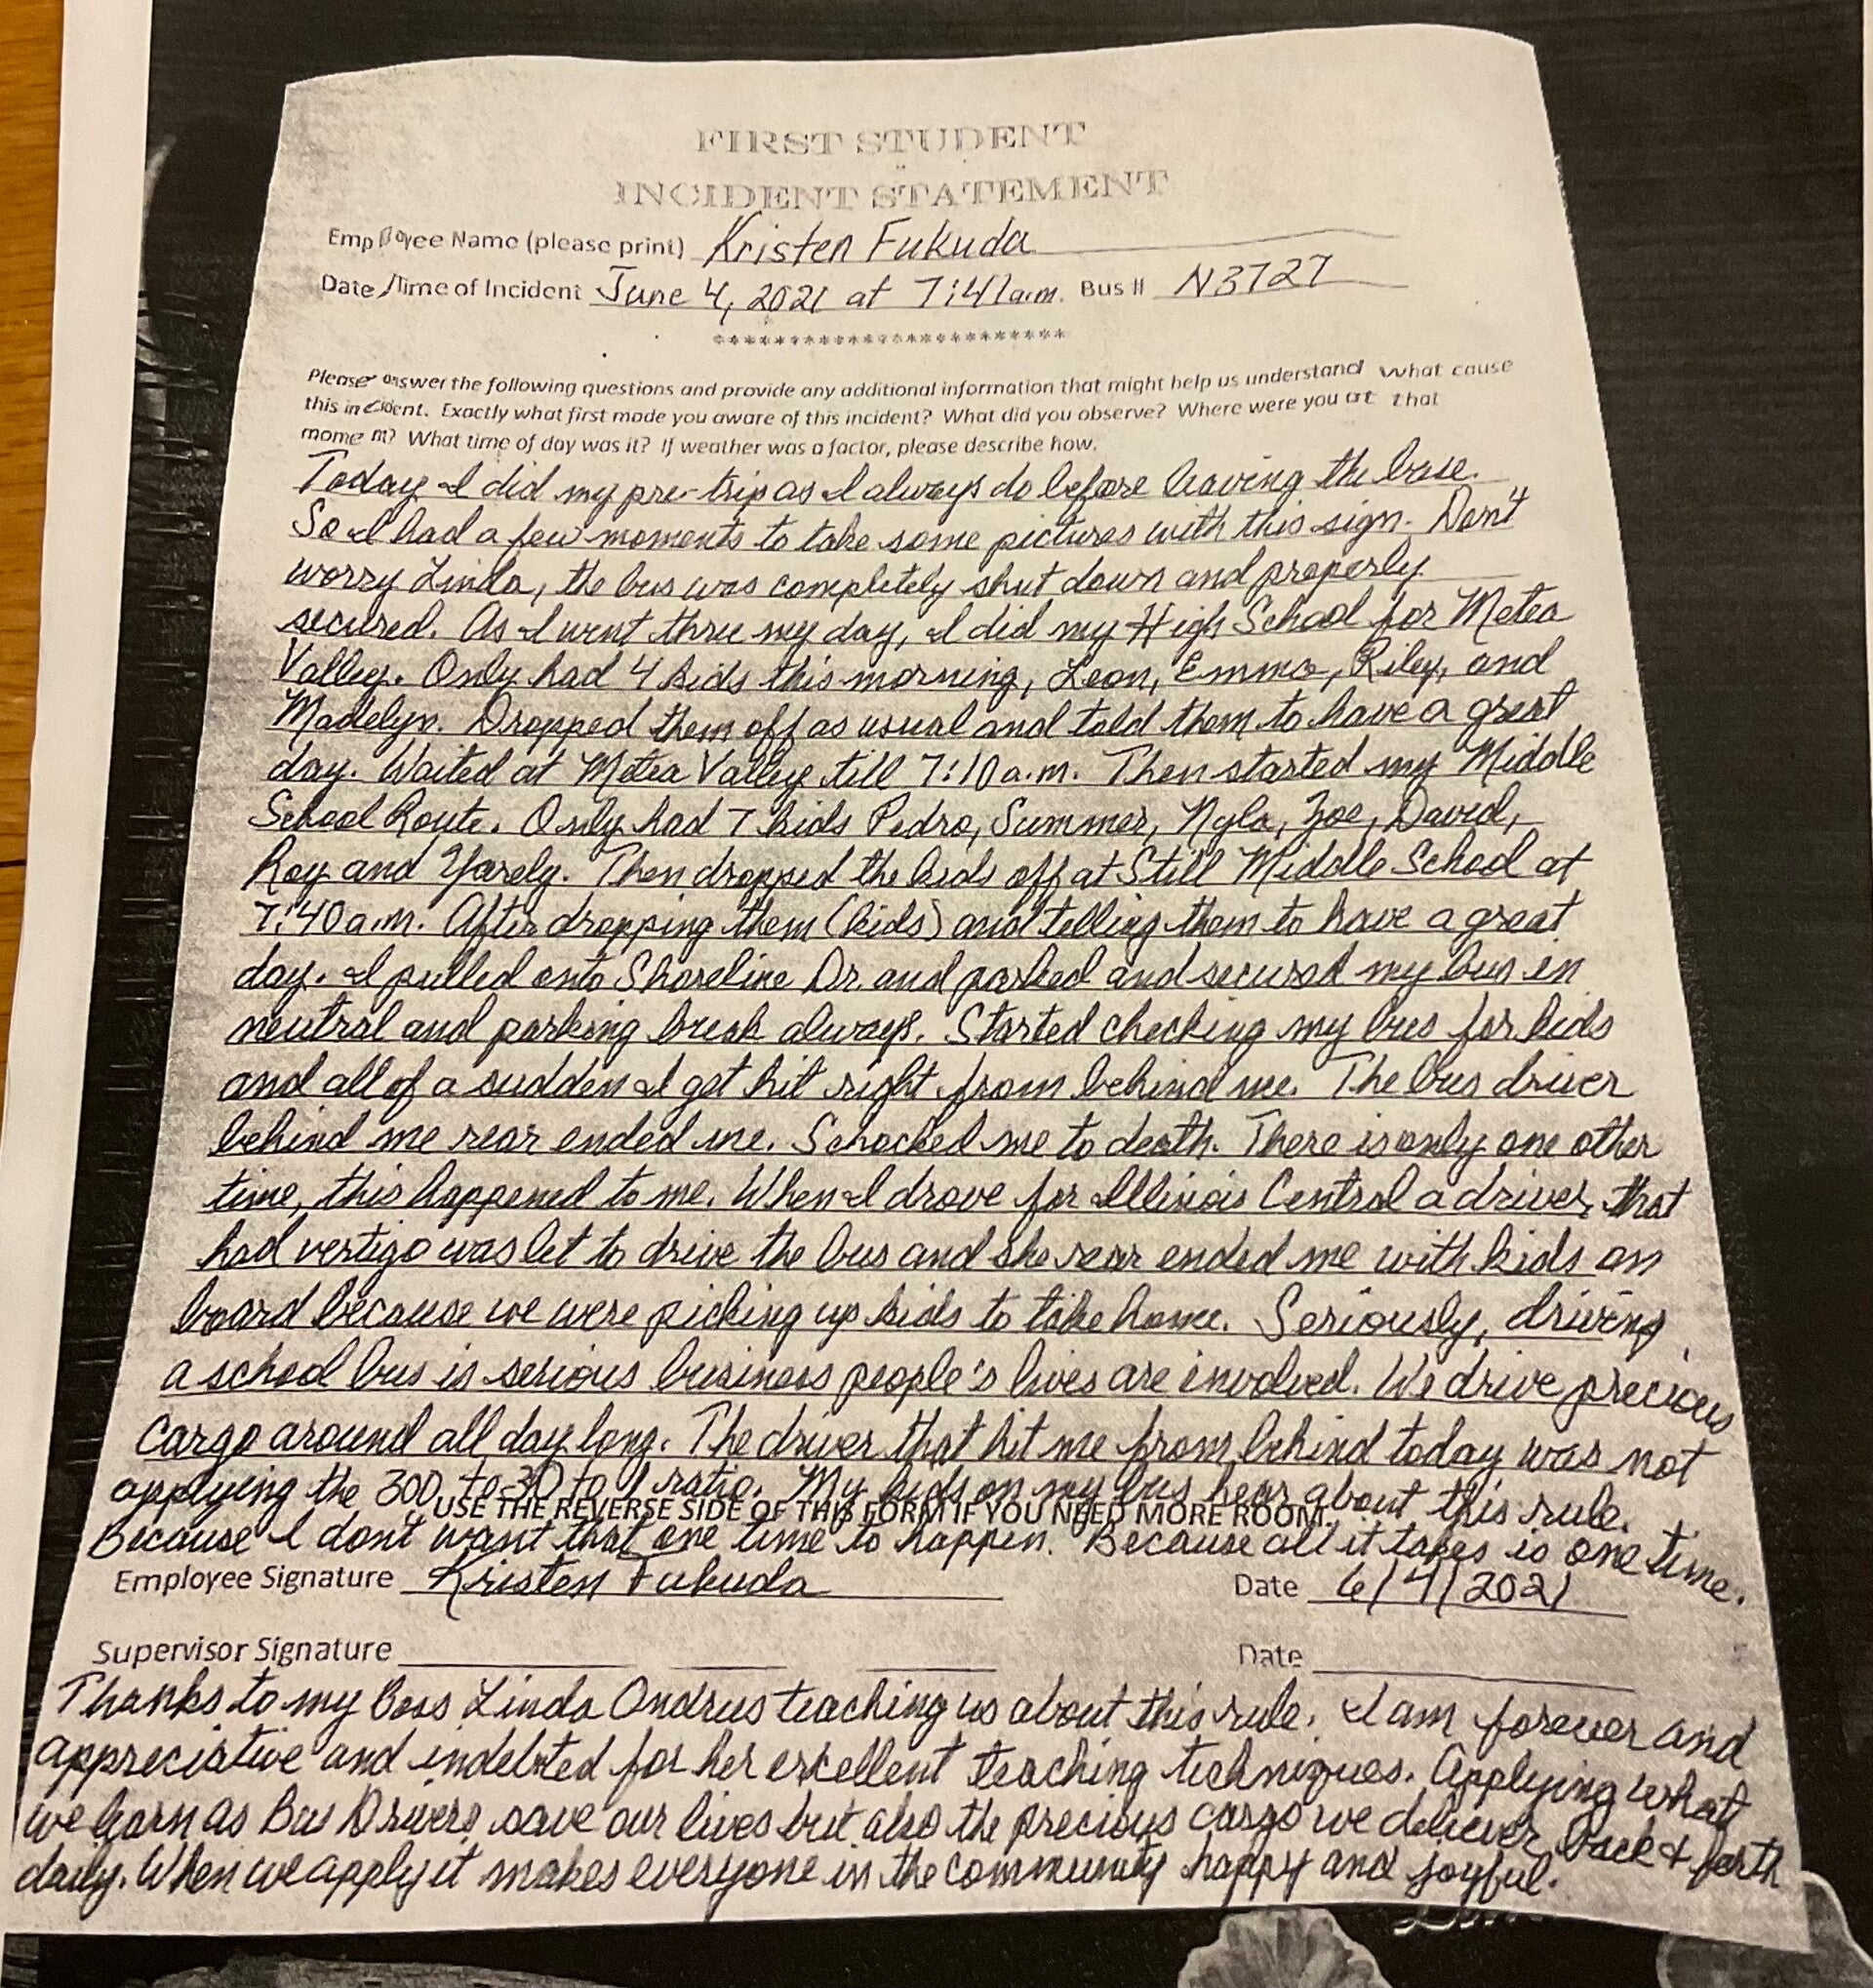 FIRST STUDENT
INCIDENT STATEMENT
Employee Name (please print) Kristen Fukuda
Date/Time of Incident June 4, 2021 at 7:41a.m. Bus # N3727
************************
Please answer the following questions and provide any additional information that might help us understand what cause
this incident. Exactly what first made you aware of this incident? What did you observe? Where were you at that
moment? What time of day was it? If weather was a factor, please describe how.
Today I did my pre-trip as I always do before leaving the base.
So I had a few moments to take some pictures with this sign. Don't
worry Linda, the bus was completely shut down and properly
secured. As I went thru my day, I did my High School for Metea
Valley. Only had 4 kids this morning, Leon, Emma, Riley, and
Madelyn. Dropped them off as usual and told them to have a great
day. Waited at Metea Valley till 7:10 a.m. Then started my Middle
School Route. Only had 7 kids Pedro, Summer, Nyla, Zoe, David,
Roy and Yarely. Then dropped the kids off at Still Middle School at
7:40 a.m. After dropping them (kids) and telling them to have a great
day. I pulled onto Shoreline Dr. and parked and secured my bus in
neutral and parking break always. Started checking my bus for kids
and all of a sudden I get hit right from behind me. The bus driver
behind me rear ended me. Schocked me to death. There is only one other
time, this happened to me. When I drove for Illinois Central a driver, that
had vertigo was let to drive the bus and she rear ended me with kids on
board because we were picking up kids to take home. Seriously, driving
a school bus is serious business people's lives are involved. We drive precious
cargo around all day long. The driver that hit me from behind today was not
applying the 300 to 30 to 1 ratio. My kids on my bus hear about this rule.
USE THE REVERSE SIDE OF THIS FORM IF YOU NEED MORE ROOM.
Because I don't want that one time to happen. Because all it takes is one time.
Employee Signature Kristen Fukuda Date 6/4/2021
Supervisor Signature Date
Thanks to my Boss Linda Ondrus teaching us about this rule. I am forever and
appreciative and indebted for her excellent teaching techniques. Applying what
we learn as Bus Drivers save our lives but also the precious cargo we deliever back & forth
daily. When we apply it makes everyone in the community happy and joyful.